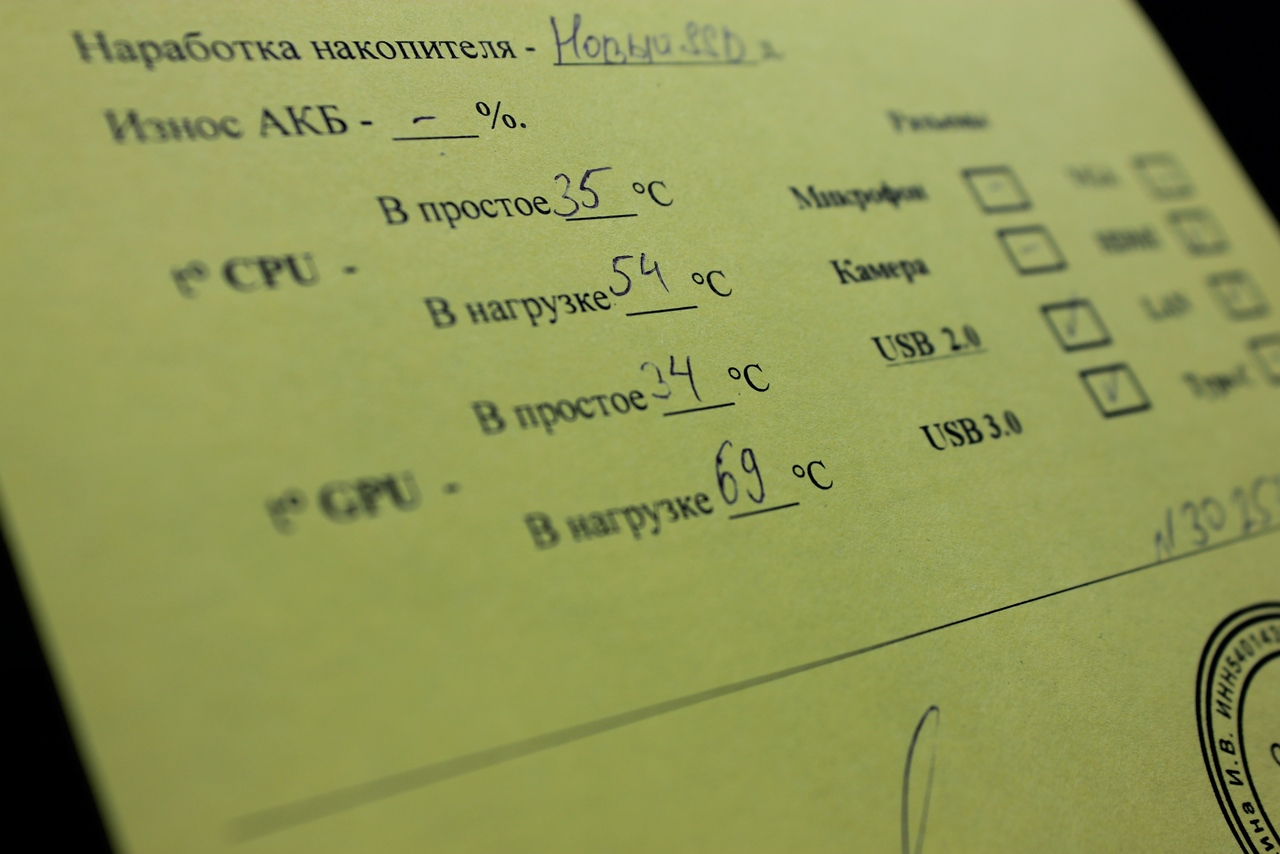 Наработка накопителя - Новый SSD
Износ АКБ - – %.
Разъемы
В простое 35 °C
t° CPU -
В нагрузке 54 °C
В простое 34 °C
t° GPU -
В нагрузке 69 °C
Микрофон
Камера
USB 2.0
USB 3.0
HDMI
LAN
Type-C
N 3025
И.В. ИНН540143